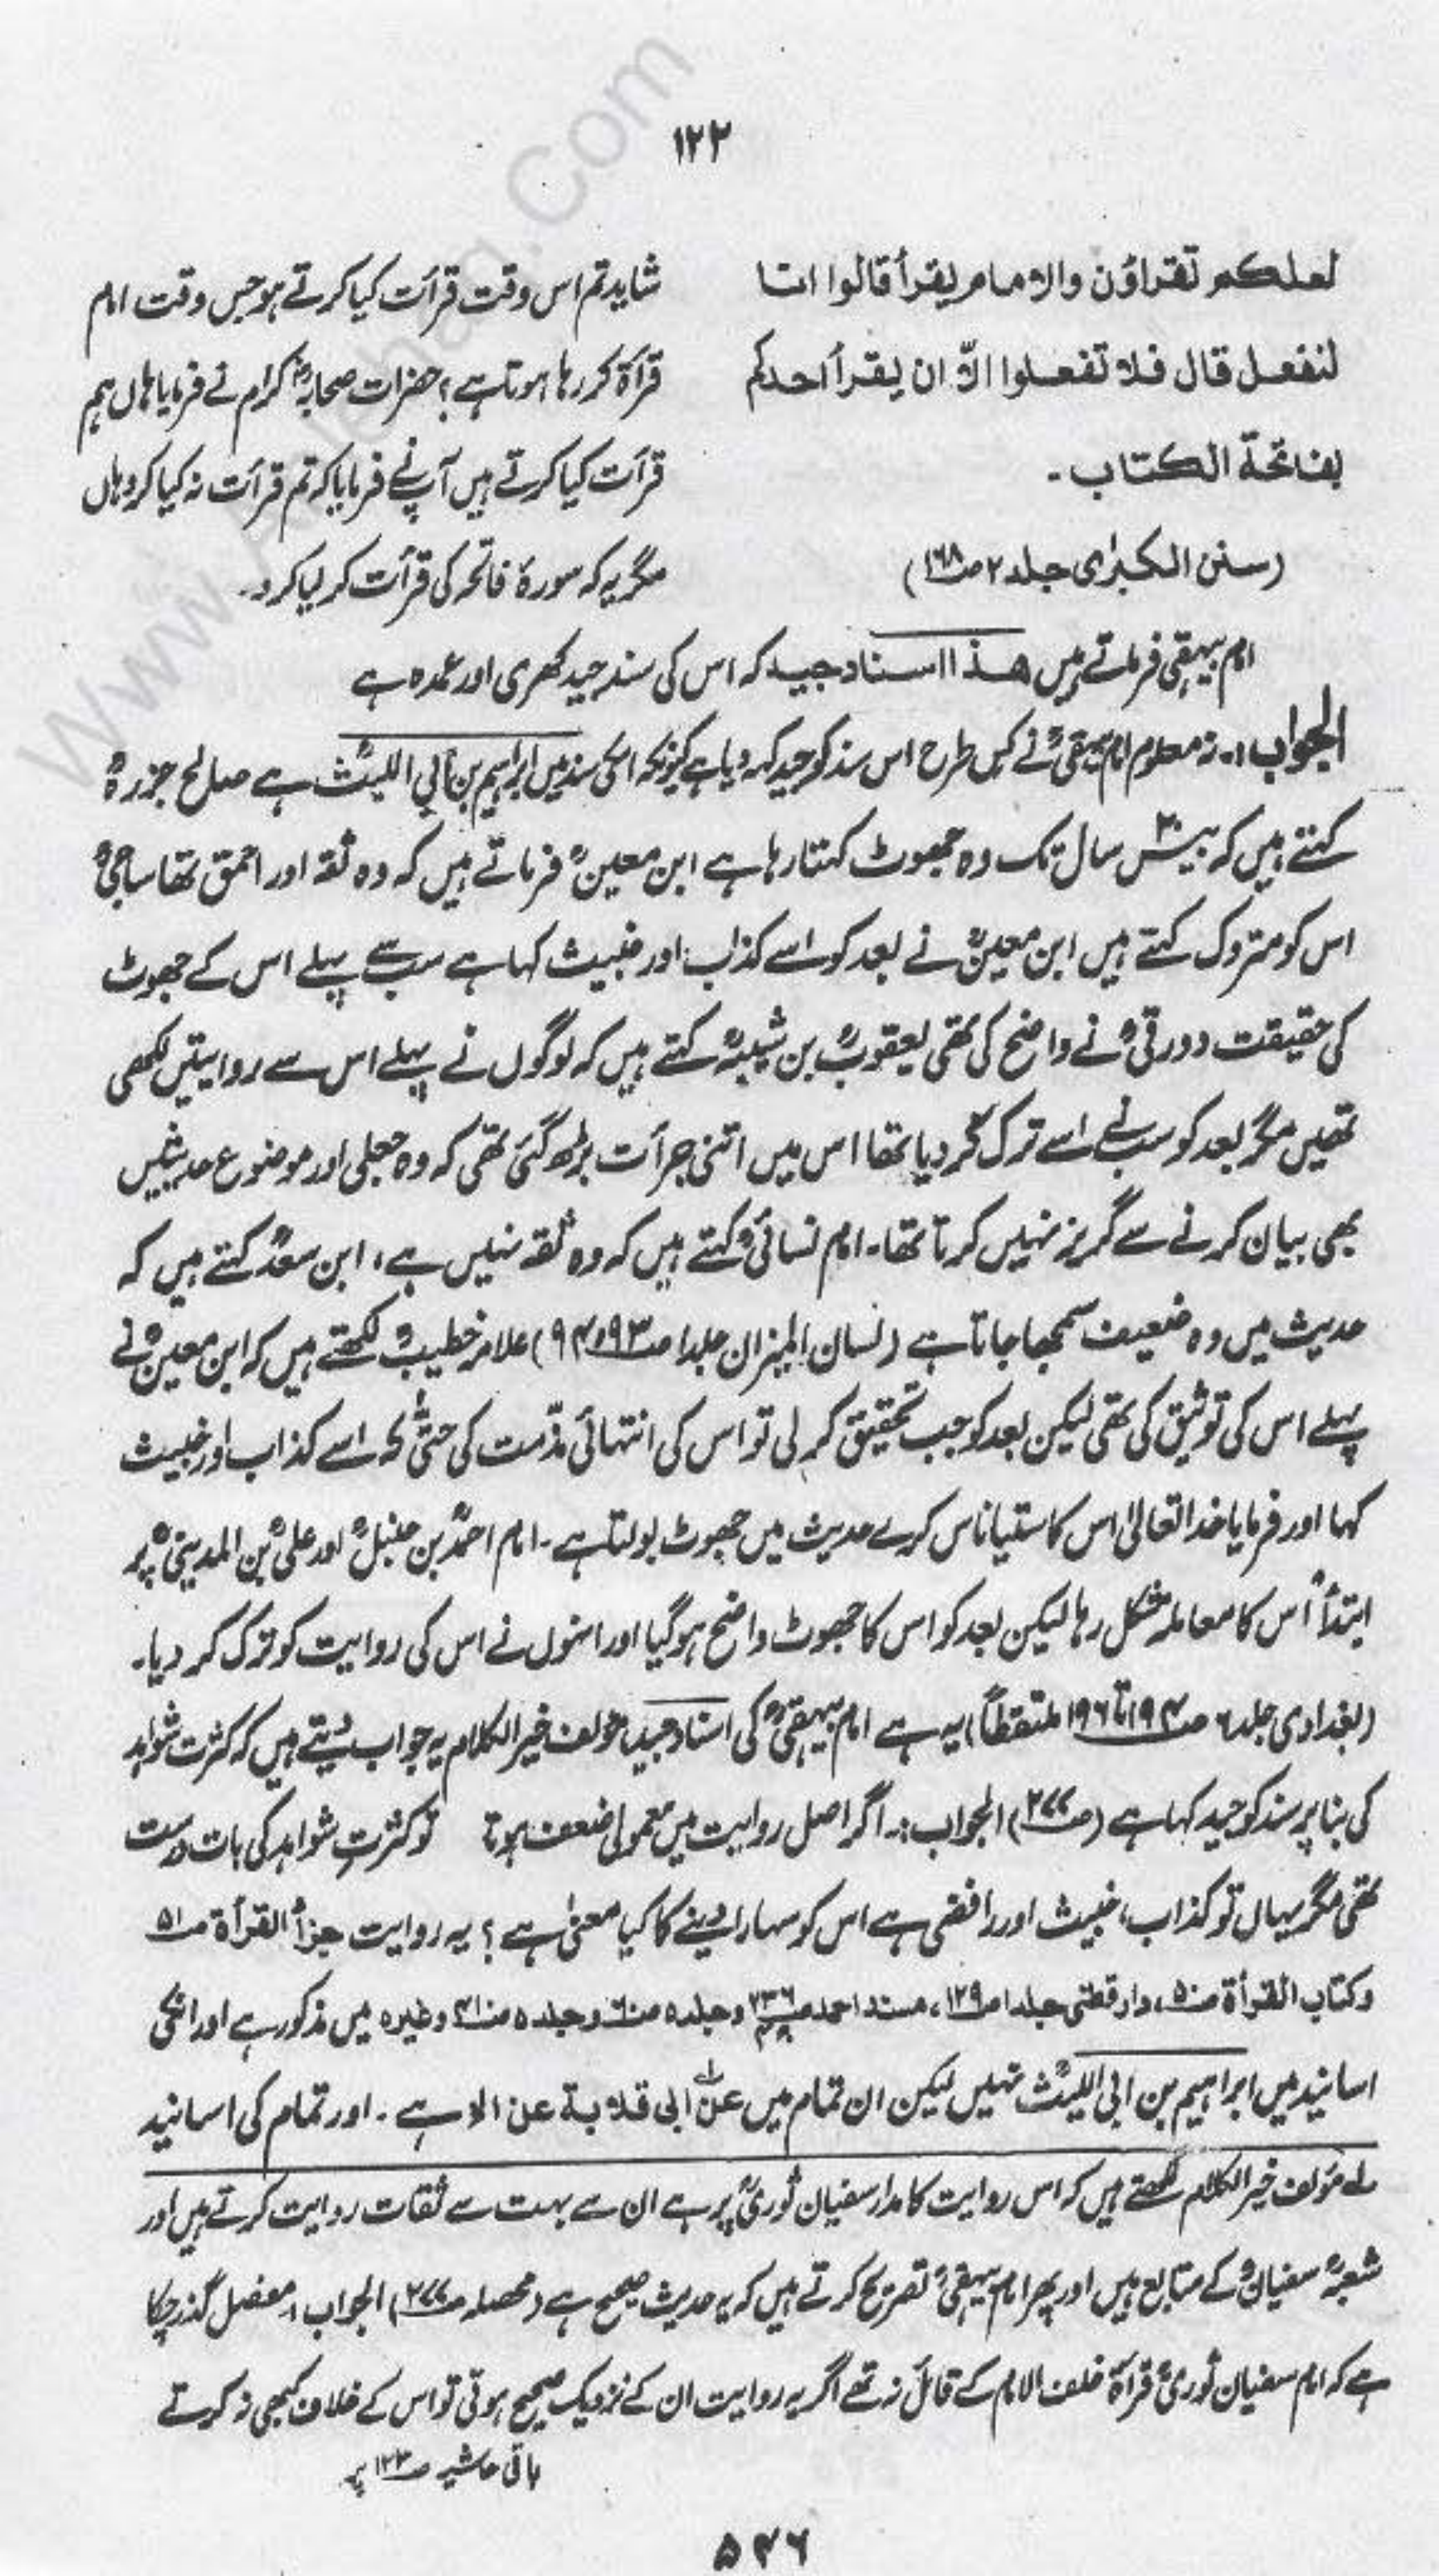 www. Alehaq.com
۱۲۲
لعلكم تقرأون والامام يقرأ قالوا انا
لنفعل قال فلا تفعلوا الّا ان يقرأ احدكم
بفاتحة الكتاب -
(سنن الكبرٰى جلد ۲ ص۱۶۸)
شاید تم اس وقت قرأت کیا کرتے ہو جس وقت امام
قرأة کر رہا ہوتا ہے؟ حضرات صحابہؓ کرام نے فرمایا ہاں ہم
قرأت کیا کرتے ہیں آپ نے فرمایا کہ تم قرأت نہ کیا کرو ہاں
مگر یہ کہ سورۂ فاتحہ کی قرأت کر لیا کرو۔
امام بیہقی فرماتے ہیں هذا اسناد جيد کہ اس کی سند جید کھری اور عمدہ ہے
الجواب :۔ نہ معلوم امام بیہقیؒ نے کس طرح اس سند کو جید کہہ دیا ہے کیونکہ اسکی سند میں ابراہیم بن ابی اللیثؒ ہے صالح جزرہؒ
کہتے ہیں کہ بیس۲۰ سال تک وہ جھوٹ کہتا رہا ہے ابن معینؒ فرماتے ہیں کہ وہ ثقہ اور احمق تھا ساجیؒ
اس کو متروک کہتے ہیں ابن معینؒ نے بعد کو اسے کذاب اور خبیث کہا ہے سب سے پہلے اس کے جھوٹ
کی حقیقت دورقیؒ نے واضح کی تھی یعقوبؒ بن شیبہؒ کہتے ہیں کہ لوگوں نے پہلے اس سے روایتیں لکھی
تھیں مگر بعد کو سب نے اسے ترک کر دیا تھا اس میں اتنی جرأت بڑھ گئی تھی کہ وہ جعلی اور موضوع حدیثیں
بھی بیان کرنے سے گریز نہیں کرتا تھا۔ امام نسائیؒ کہتے ہیں کہ وہ ثقہ نہیں ہے، ابن سعدؒ کہتے ہیں کہ
حدیث میں وہ ضعیف سمجھا جاتا ہے (لسان المیزان جلد۱ ص۹۳ و ۹۴) علامہ خطیبؒ لکھتے ہیں کہ ابن معینؒ نے
پہلے اس کی توثیق کی تھی لیکن بعد کو جب تحقیق کر لی تو اس کی انتہائی مذّمت کی حتّٰی کہ اسے کذاب اور خبیث
کہا اور فرمایا خدا تعالیٰ اس کا ستیاناس کرے حدیث میں جھوٹ بولتا ہے۔ امام احمدؒ بن حنبلؒ اور علیؒ بن المدینیؒ پر
ابتدأً اس کا معاملہ مشکل رہا لیکن بعد کو اس کا جھوٹ واضح ہو گیا اور انہوں نے اس کی روایت کو ترک کر دیا۔
(بغدادی جلد۶ ص۱۹۴ تا ۱۹۶ ملتقطاً) یہ ہے امام بیہقیؒ کی اسناد جید، مؤلف خیر الکلام یہ جواب دیتے ہیں کہ کثرت شواہد
کی بنا پر سند کو جید کہا ہے (ص۲۷۷) الجواب :۔ اگر اصل روایت میں معمولی ضعف ہوتا تو کثرتِ شواہد کی بات درست
تھی مگر یہاں تو کذاب، خبیث اور رافضی ہے اس کو سہارا دینے کا کیا معنیٰ ہے؟ یہ روایت جزأ القرأة ص۵۱
وکتاب القرأة ص۵۰، دارقطنی جلد۱ ص۱۲۹، مسند احمد ص وجلد۵ ص۶۰ وجلد۵ ص۴۱۰ وغیرہ میں مذکور ہے اور انکی
اسانید میں ابراہیم بن ابی اللیثؒ نہیں لیکن ان تمام میں عن ابی قلابة عن الا ہے۔ اور تمام کی اسانید
لے مؤلف خیر الکلام لکھتے ہیں کہ اس روایت کا مدار سفیان ثوریؒ پر ہے ان سے بہت سے ثقات روایت کرتے ہیں اور
شعبہؒ سفیانؒ کے متابع ہیں اور پھر امام بیہقیؒ تصریح کرتے ہیں کہ یہ حدیث صحیح ہے (محصلہ ص۲۷۷) الجواب: مفصل گذر چکا
ہے کہ امام سفیان ثوریؒ قرأة خلف الامام کے قائل نہ تھے اگر یہ روایت ان کے نزدیک صحیح ہوتی تو اس کے خلاف کبھی نہ کرتے
باقی حاشیہ ص۱۲۳ پر
۵۴۶